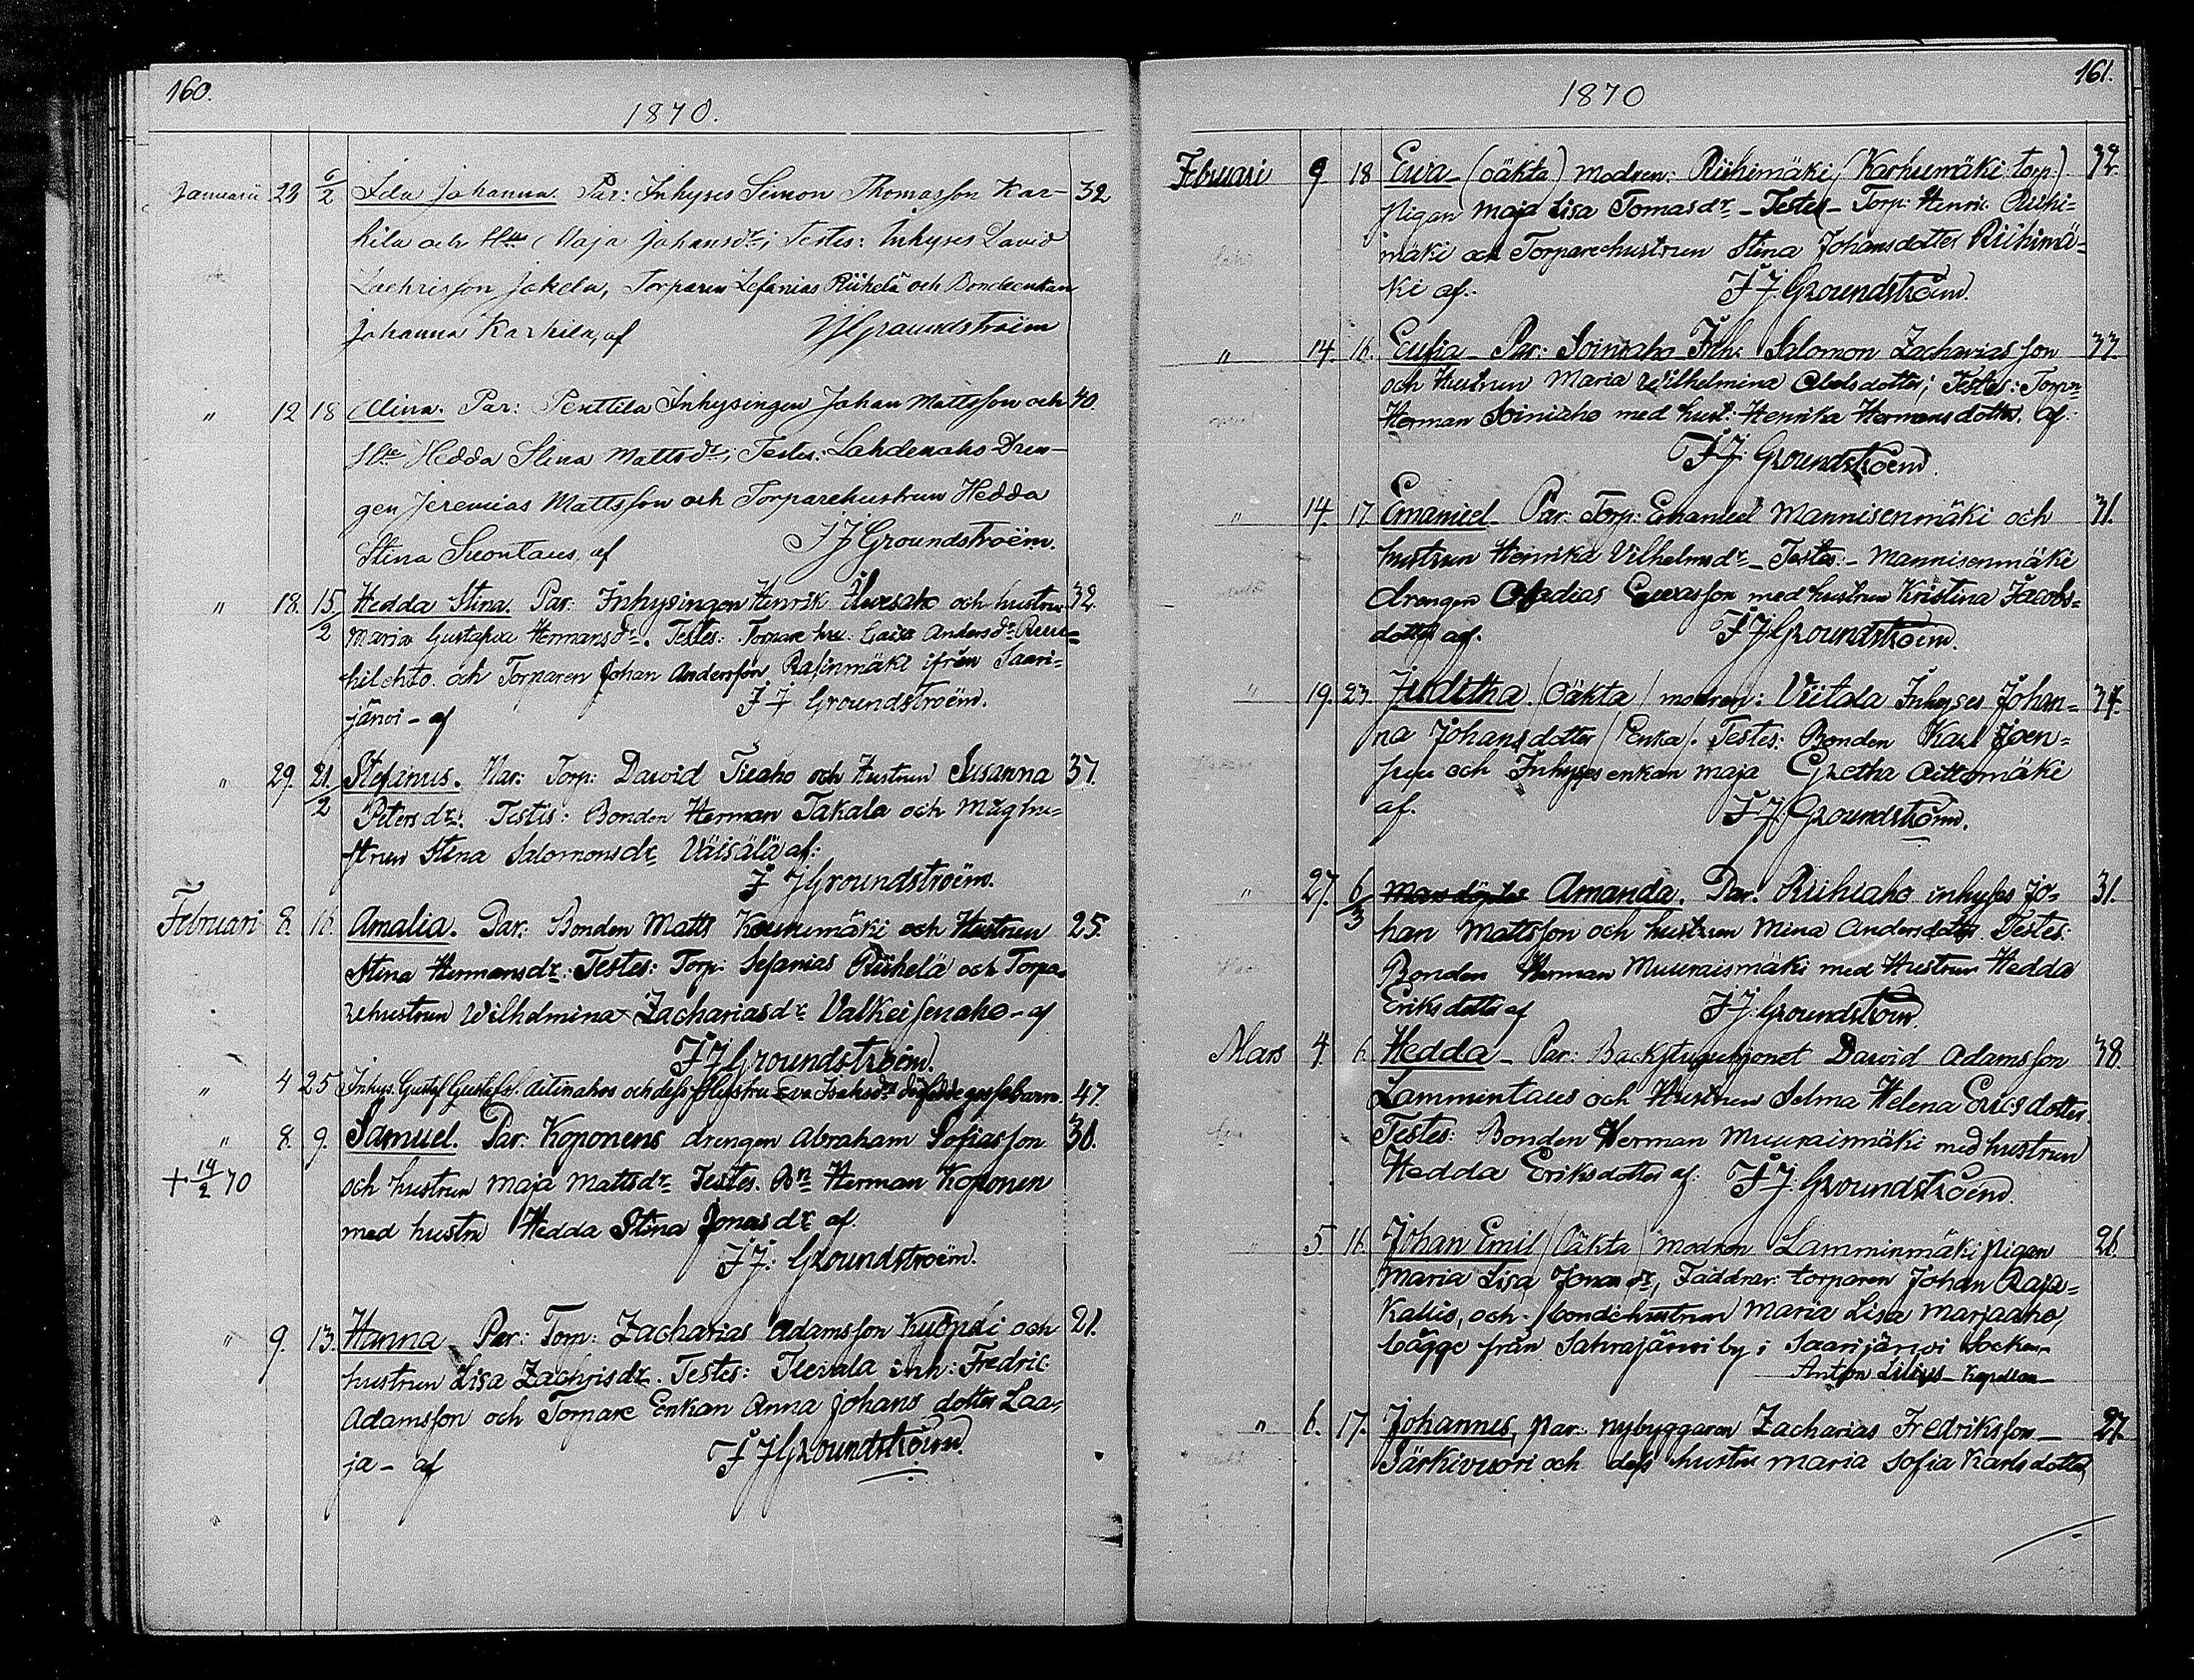 160.
1870.
Januarii 23 6/2 Ida Johanna. Par: Inhyses Simon Thomasson Kar- 32
kila och H:u Maja Johansdr; Testes: Inhyses David
Zachrisson Jokela, Torparen Sefanias Riihelä och Bondeenkan
Johanna Karkila, af JJGroundstroëm
" 12 18 Alina. Par: Penttila Inhysingen Johan Mattsson och 40.
H:u Hedda Stina Mattsdr; Testes: Lahdenaho Dren-
gen Jeremias Mattsson och Torparehustrun Hedda
Stina Suontaus, af JJGroundstroëm.
" 18. 15./2 Hedda Stina. Par: Inhysingen Henrik och hustrun 32.
Maria Gustafva Hermansdr. Testes: Torpare hu: Caisa Andersdr Ruu=
hilehto och Torparen Johan Andersson Rasinmäki ifrån Saari=
järvi - af JJ Groundstroëm.
" 29. 21./2 Stefanus. Par: Torp: David Tiiaho och Hustrun Susanna 37.
Petersdr. Testis: Bonden Herman Takala och Måghu=
strun Stina Salomonsdr Väisälä af:
JJGroundstroëm.
Februari 8. 16. Amalia. Par: Bonden Matts och Hustrun 25.
Stina Hermansdr: Testes: Torp: Sefanias Riihelä och Torpa=
rehustrun Wilhelmina Zachariasdr Valkeisenaho - af
JJGroundstroëm.
" 4 25 Inhys. Gustaf Gustafs. Aitinahos och dess Hustru Eva Isaksdr dödfödde gossebarn. 47.
" 8. 9. Samuel. Par: Koponens drengen Abraham Sofiasson 30.
+ 14/2 70 och hustrun Maja Mattsdr Testes. Bn Herman Koponen
med hustru Hedda Stina Jonasdr af.
JJ. Groundstroëm.
" 9. 13. Hanna Par: Torp: Zacharias Adamsson Kuoppi och 21.
hustrun Lisa Zachrisdr. Testes: inh: Fredric
Adamsson och Torpare Enkan Anna Johans dotter Laa=
ja - af JJGroundstroëm.
161.
1870
Februari 9. 18 Ewa (oäkta) modren: Riihimäki (Karhumäki torp:) 32.
pigan Maja Lisa Tomasdr - Testes - Torp: Henric Riihi=
mäki och Torparehustrun Stina Johansdotter Riihimä=
ki af. JJ.Groundstroëm.
" 14. 16. Eufia Par: Soiniaho Inh: Salomon Zachariasson 33
och Hustrun Maria Wilhelmina Abelsdotter; Testes: Torpn
Herman Soiniaho med hust: Henrika Hermansdotter. af:
JJ. Groundstroëm.
" 14. 17 Emanuel Par: Torp: Emanuel Mannisenmäki och 31.
hustrun Henrika Vilhelmsdr - Testes: - Mannisenmäki
drengen med hustrun Kristina Jacobs=
dotter af. JJGroundstroëm.
" 19. 23. Juditha. /Oäkta/ modren: Viitala Inhyses Johan= 34.
na Johansdotter /Enka/. Testes: Bonden Karl Joen=
suu och Inhysesenkan Maja Gretha Aittomäki
af. JJ.Groundstroëm.
" 27. 6/3 Amanda. Par: Riihiaho inhyses Jo= 31.
han Mattsson och hustrun Mina Andersdotter. Testes:
Bonden Herman Muuraismäki med Hustrun Hedda
Eriksdotter af JJ.Groundstroëm.
Mars 4. 6. Hedda - Par: Backstuguhjonet David Adamsson 38.
Lammintaus och Hustrun Selma Helena Ericsdotter.
Testes: Bonden Herman Muuraismäki med hustrun
Hedda Eriksdotter af. JJ. Groundstroëm.
" 5. 16. Johan Emil /Oäkta/ modren Lamminmäki pigan 26.
Maria Lisa Jonasdr, Faddrar: torparen Johan Raja=
kallio, och bondehustrun Maria Lisa Marjaaho,
bägge från Sahrajärvi by i Saarijärvi Socken
Anton Lilius - Kapellan -
" 6. 17. Johannes, Par: nybyggaren Zacharias Fredriksson - 27.
Särkivuori och dess hustru Maria Sofia Karlsdotter,